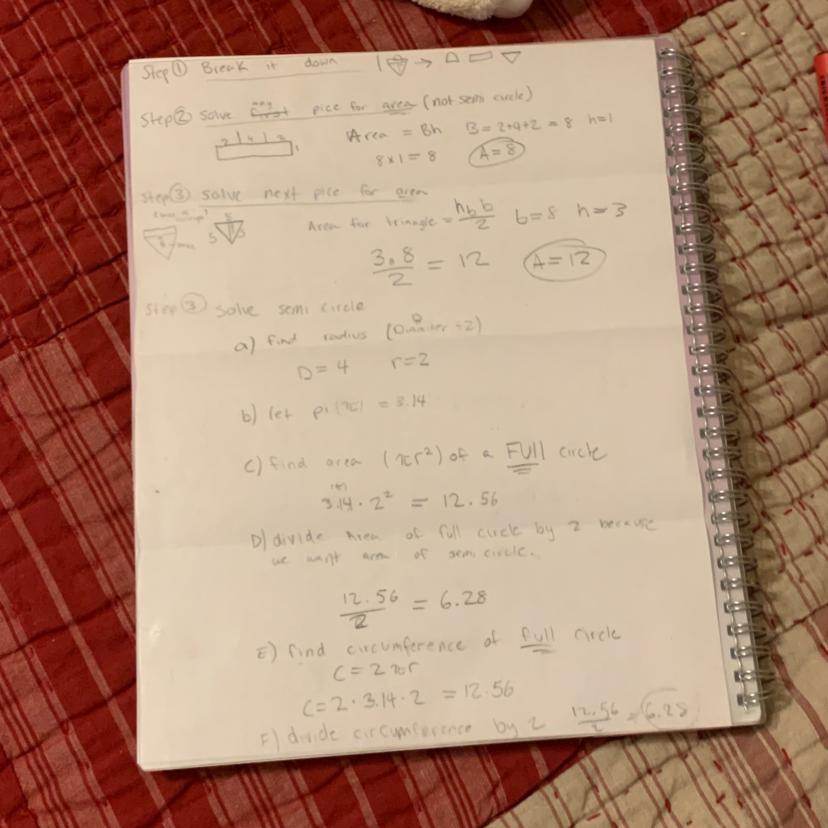 Step ① Break it down
Step ② Solve any first pice for area (not semi circle)
Area = Bh B = 2+4+2 = 8 h=1
2 | 4 | 2
8 x 1 = 8 A = 8
Step ③ Solve next pice for area
Area for triangle = h b b / 2 b = 8 h = 3
8
5 5
3 . 8 / 2 = 12 A = 12
Step ③ Solve semi circle
a) find radius (Diamiter ÷ 2)
D = 4 r = 2
b) let pi (π) = 3.14
C) find area (πr²) of a FUll circle
(π)
3.14 · 2² = 12.56
D) divide Area of full circle by 2 because
we want area of semi circle.
12.56 / 2 = 6.28
E) find circumference of full circle
C = 2πr
C = 2 · 3.14 · 2 = 12.56
F) divide circumference by 2 12.56 / 2 = 6.28